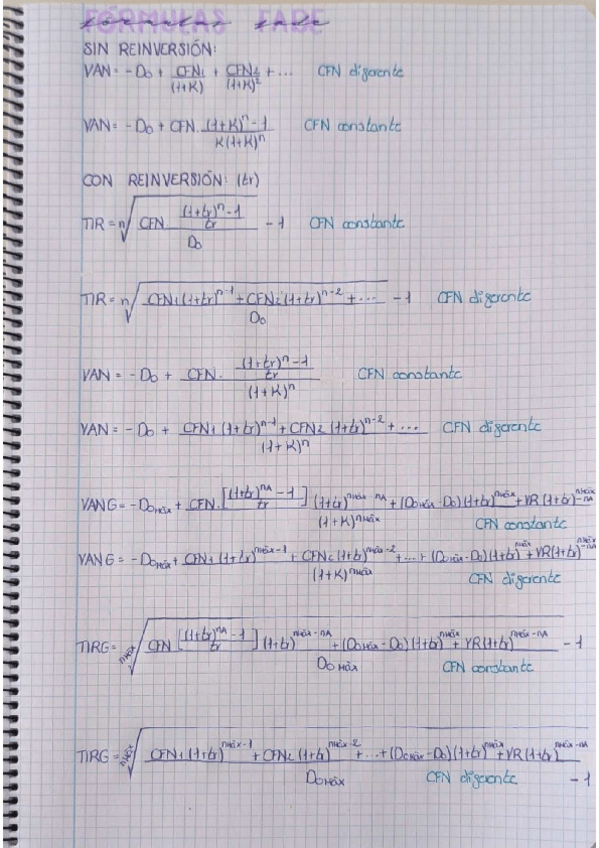 FÓRMULAS FADE
SIN REINVERSIÓN:
VAN = -Do + CFN1/(1+K) + CFN2/(1+K)^2 + ... CFN diferente
VAN = -Do + CFN · ((1+K)^n - 1)/(K(1+K)^n) CFN constante
CON REINVERSIÓN: (tr)
TIR = n√(CFN · (((1+tr)^n - 1)/tr)/Do) - 1 CFN constante
TIR = n√((CFN1(1+tr)^(n-1) + CFN2(1+tr)^(n-2) + ...)/Do) - 1 CFN diferente
VAN = -Do + (CFN · ((1+tr)^n - 1)/tr)/(1+K)^n CFN constante
VAN = -Do + (CFN1(1+tr)^(n-1) + CFN2(1+tr)^(n-2) + ...)/(1+K)^n CFN diferente
VANG = -Domáx + (CFN · [((1+tr)^nA - 1)/tr](1+tr)^(nmáx-nA) + (Domáx - Do)(1+tr)^nmáx + VR(1+tr)^(nmáx-nA))/(1+K)^nmáx CFN constante
VANG = -Domáx + (CFN1(1+tr)^(nmáx-1) + CFN2(1+tr)^(nmáx-2) + ... + (Domáx - Do)(1+tr)^nmáx + VR(1+tr)^(nmáx-nA))/(1+K)^nmáx CFN diferente
TIRG = nmáx√((CFN [((1+tr)^nA - 1)/tr](1+tr)^(nmáx-nA) + (Domáx - Do)(1+tr)^nmáx + VR(1+tr)^(nmáx-nA))/Domáx) - 1 CFN constante
TIRG = nmáx√((CFN1(1+tr)^(nmáx-1) + CFN2(1+tr)^(nmáx-2) + ... + (Domáx - Do)(1+tr)^nmáx + VR(1+tr)^(nmáx-nA))/Domáx) - 1 CFN diferente